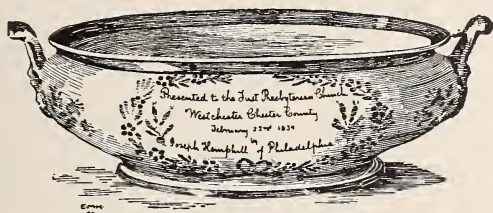 Presented to the First Presbyterian Church
Westchester Chester County
February 22nd 1839
by
Joseph Hemphill of Philadelphia